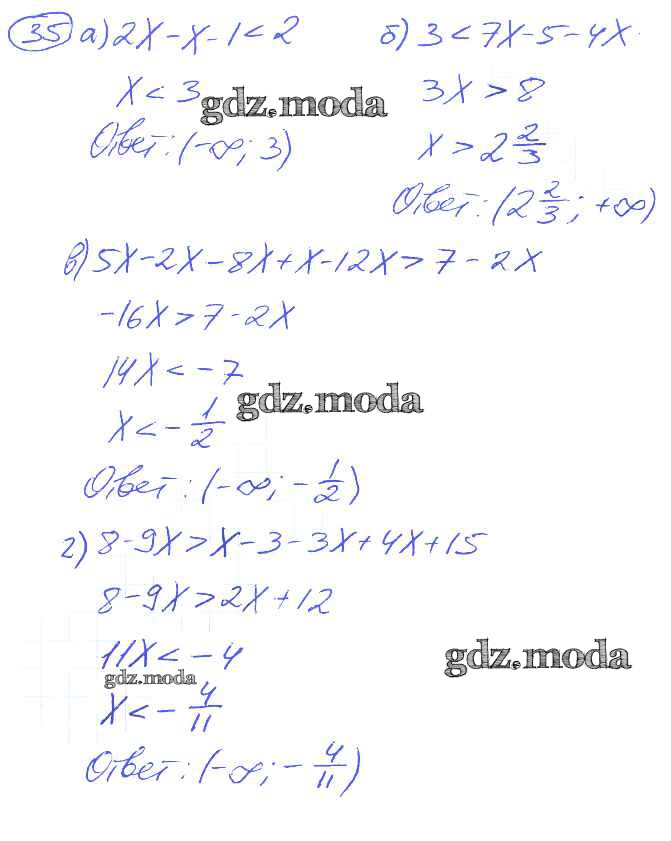 35 а) 2x-x-1<2
x<3
Ответ: (-∞; 3)
б) 3<7x-5-4x
3x>8
x>2 2/3
Ответ: (2 2/3; +∞)
в) 5x-2x-8x+x-12x>7-2x
-16x>7-2x
14x<-7
x<-1/2
Ответ: (-∞; -1/2)
г) 8-9x>x-3-3x+4x+15
8-9x>2x+12
11x<-4
x<-4/11
Ответ: (-∞; -4/11)
gdz.moda
gdz.moda
gdz.moda
gdz.moda